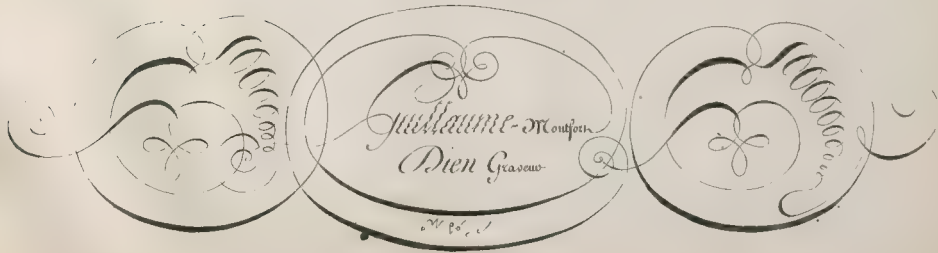 Guillaume-Montfort
Dien Graveur